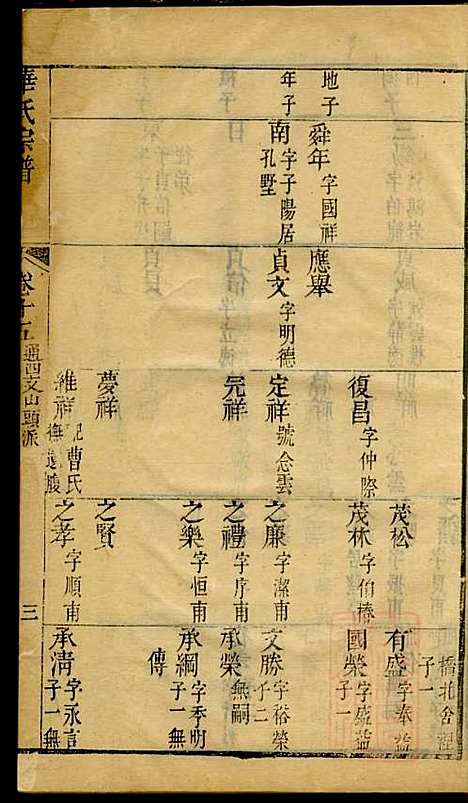 地子
年子
舜年 字國祥
南 字子陽居
孔墅
應舉
貞文 字明德
復昌 字仲際
定祥 號念雲
完祥
夢祥
維祥
曹氏
茂松
茂林 字伯椿
之廉 字潔甫
之禮 字序甫
之樂 字恒甫
之賢
之孝 字順甫
橋北舍涅
子一
有盛 字奉益
國榮 字盛益
子一
文勝 字裕榮
子二
承榮 無嗣
承綱 字季明
子一無
傳
承淸 字永言
子一無
華氏宗譜
卷十五
通四支山頭派
三